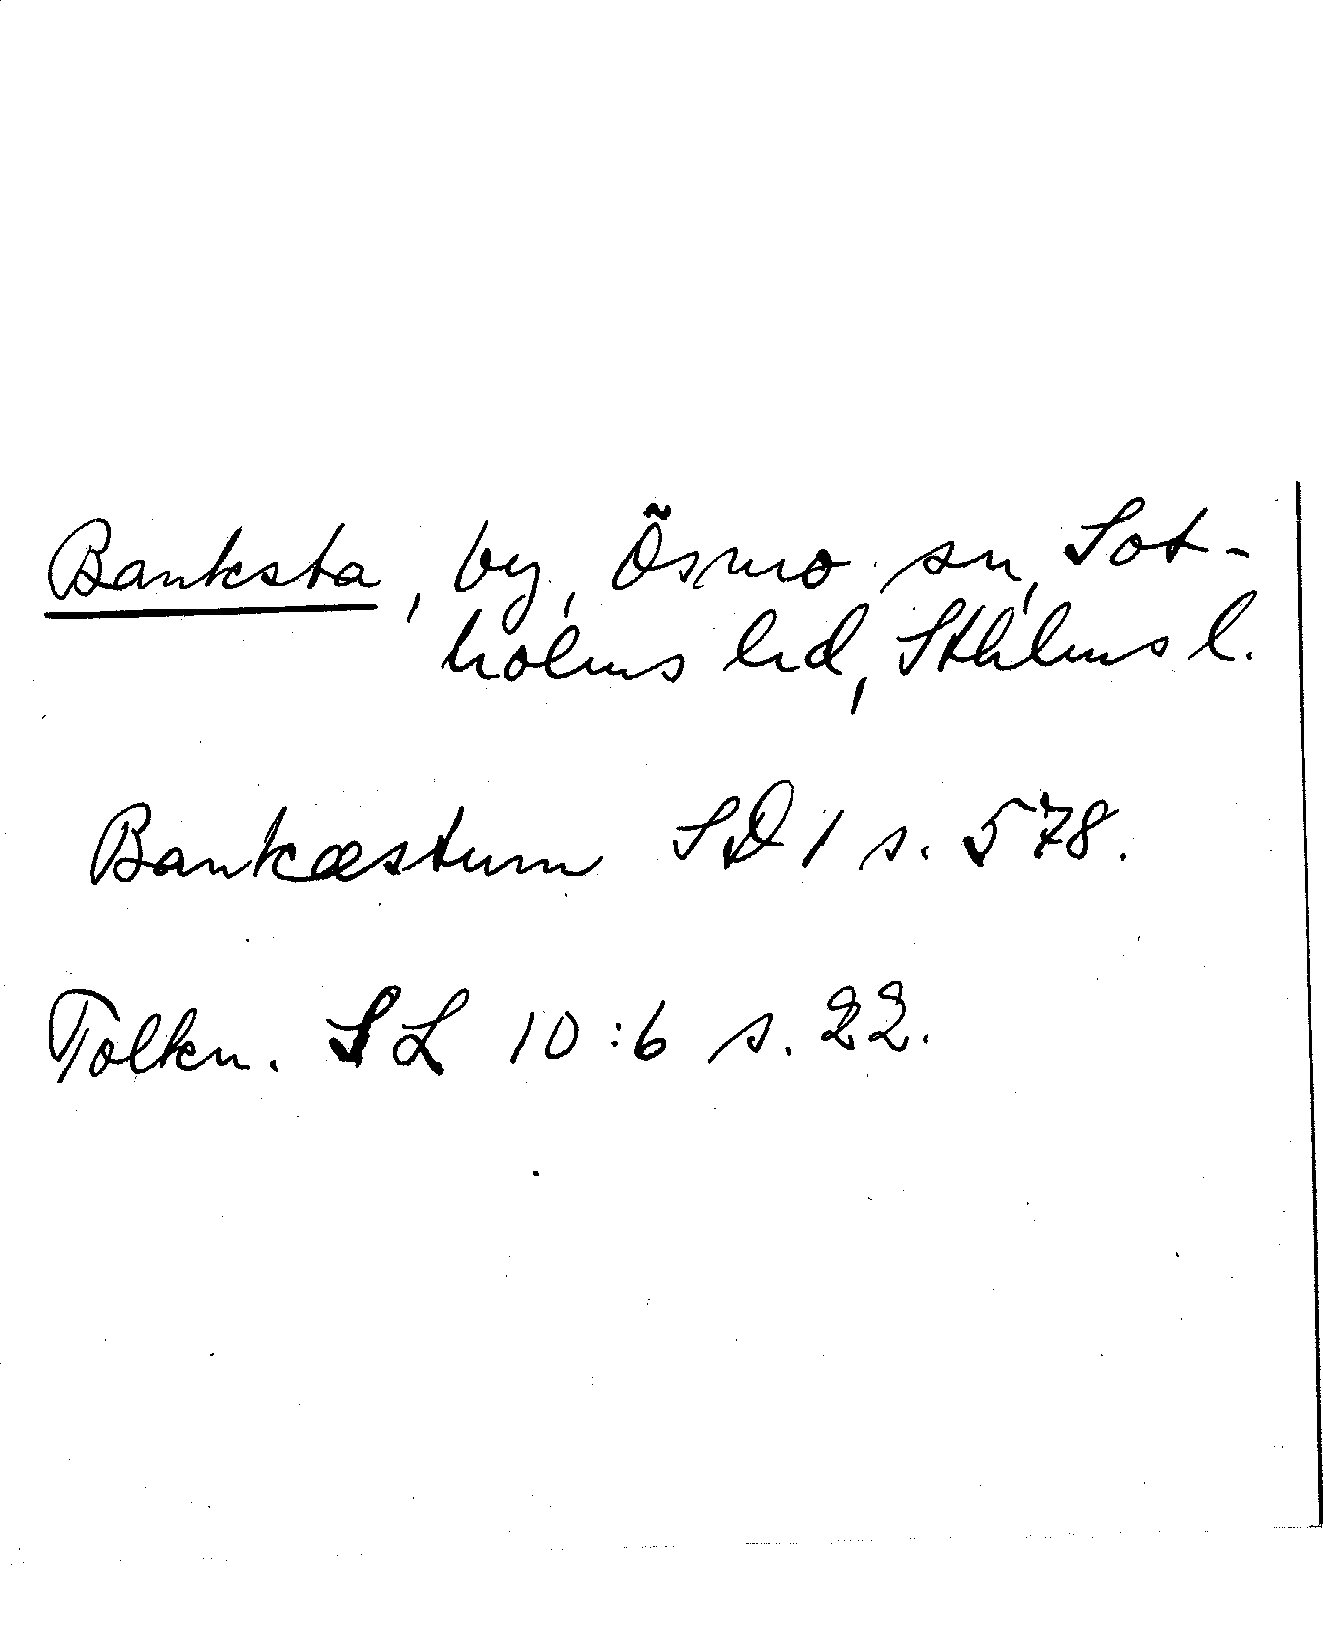 Banksta, by, Ösmo sn, Sot-
holms hd, Sthlms l.
Bankæstum SD 1 s. 578.
Tolkn. SL 10:6 s. 22.